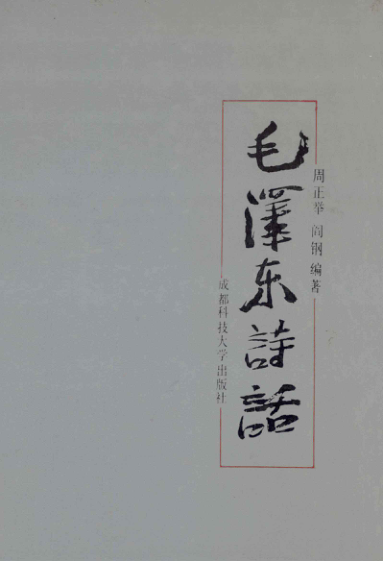 周正举 阎钢 编著
毛泽东詩話
成都科技大学出版社